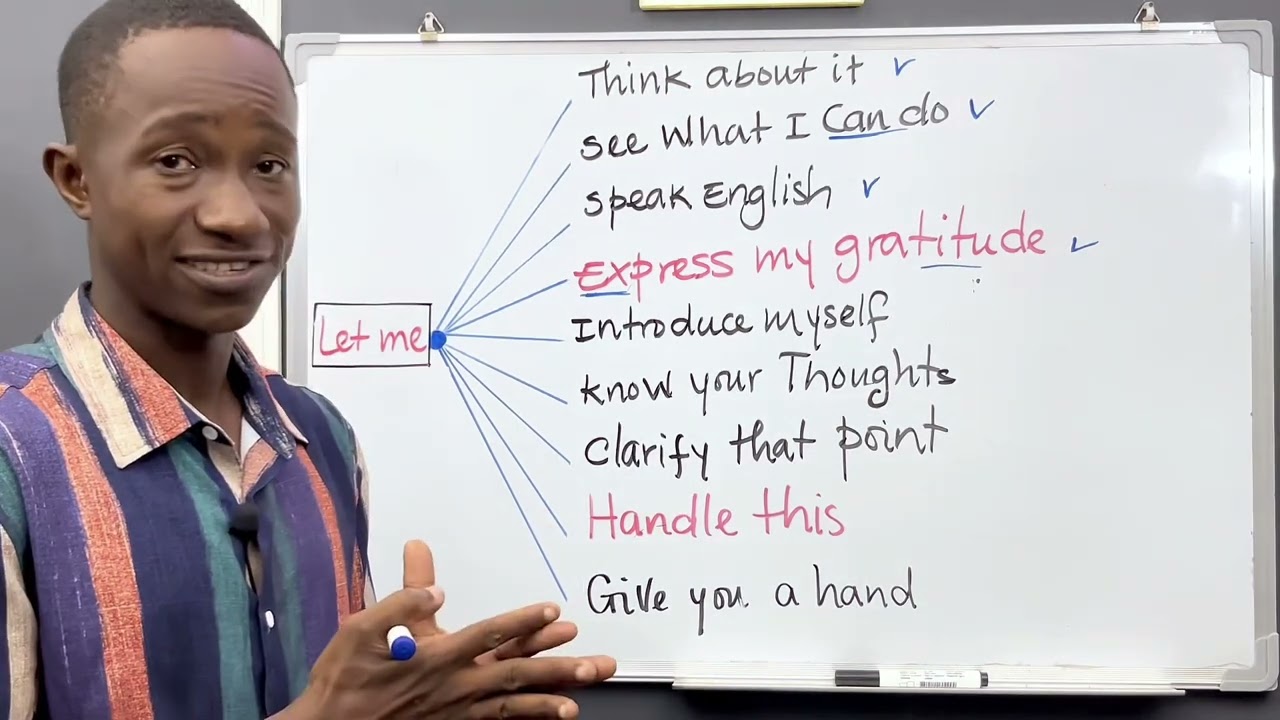 Let me
Think about it
see What I Can do
speak English
Express my gratitude
Introduce myself
know your Thoughts
Clarify that point
Handle this
Give you a hand